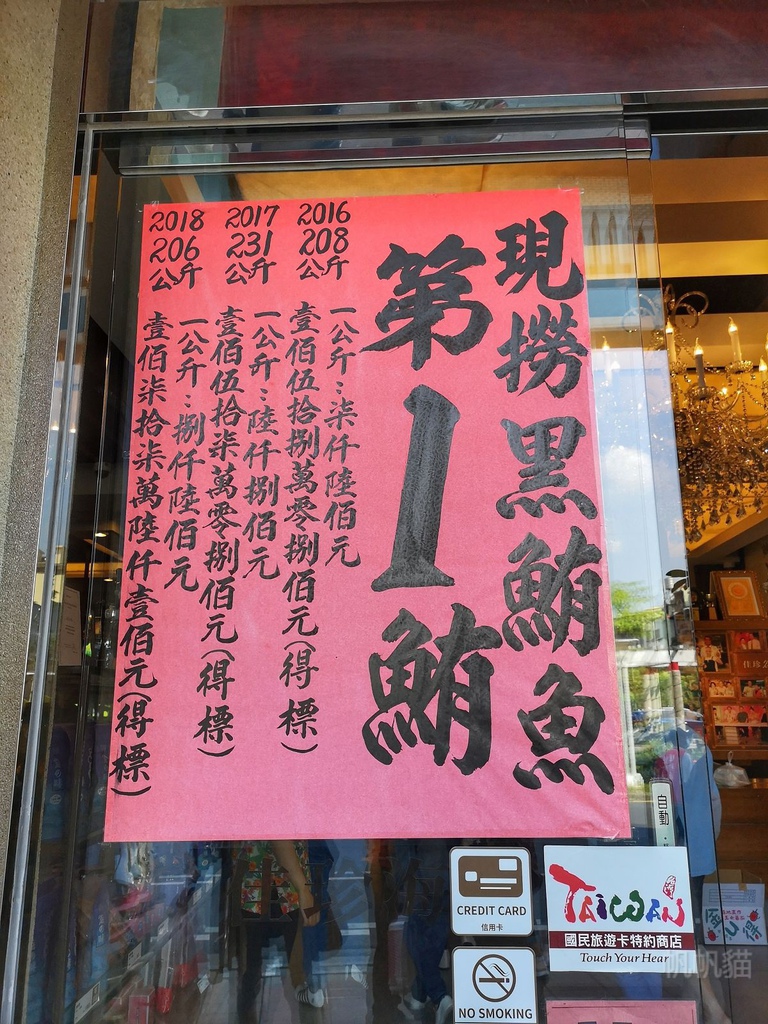 現撈黑鮪魚
第1鮪
2016
208
公斤
一公斤：柒仟陸佰元
壹佰伍拾捌萬零捌佰元(得標)
2017
231
公斤
一公斤：陸仟捌佰元
壹佰伍拾柒萬零捌佰元(得標)
2018
206
公斤
一公斤：捌仟陸佰元
壹佰柒拾柒萬陸仟壹佰元(得標)
自動
CREDIT CARD
信用卡
TAIWAN
國民旅遊卡特約商店
Touch Your Hear
NO SMOKING
帆帆貓